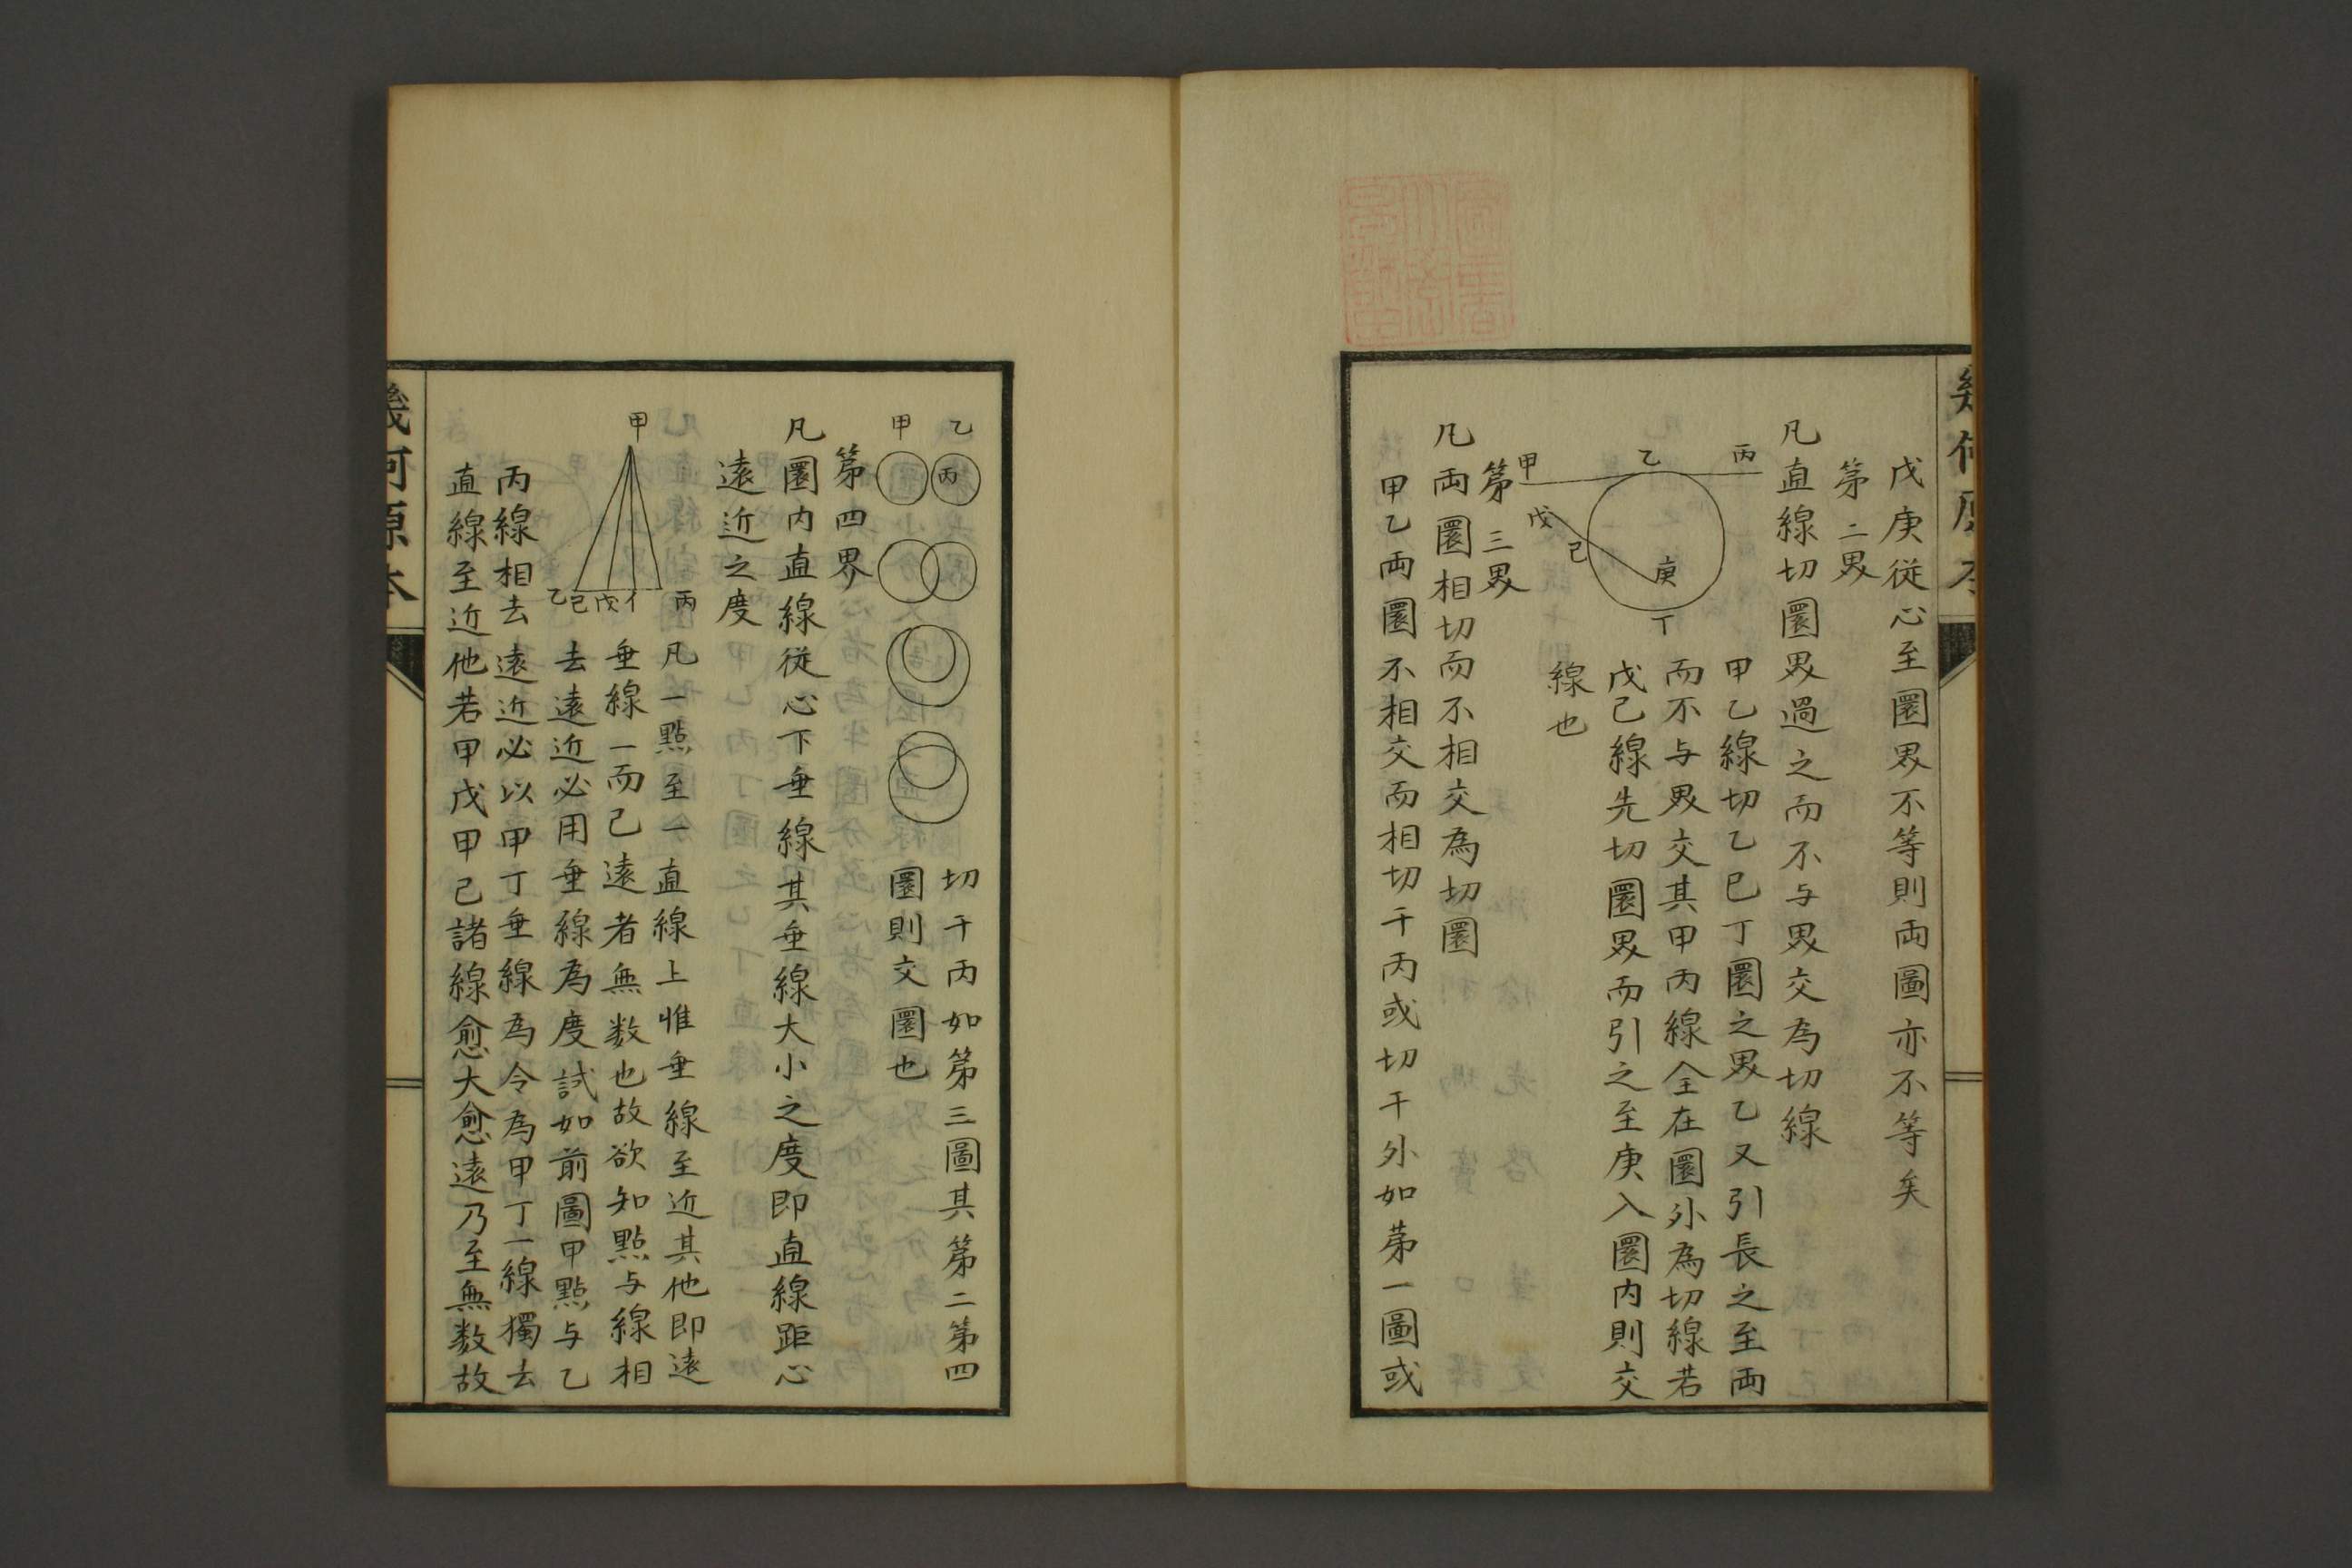 幾何原本
戊庚從心至圜界不等則両圖亦不等矣
第二界
凡直線切圜界過之而不与界交為切線
甲乙線切乙巳丁圜之界乙又引長之至両
而不与界交其甲丙線全在圜外為切線若
戊己線先切圜界而引之至庚入圜内則交
線也
甲 乙 丙
戊 己 庚 丁
第三界
凡両圜相切而不相交為切圜
甲乙両圜不相交而相切于丙或切于外如苐一圖或
切于丙如第三圖其第二第四
圜則交圜也
甲 乙
丙
第四界
凡圜内直線従心下垂線其垂線大小之度即直線距心
遠近之度
凡一點至一直線上惟垂線至近其他即遠
垂線一而己遠者無数也故欲知點与線相
去遠近必用垂線為度試如前圖甲點与乙
丙線相去遠近必以甲丁垂線為令為甲丁一線獨去
直線至近他若甲戊甲己諸線愈大愈遠乃至無数故
甲
乙 己 戊 丙
幾何原本